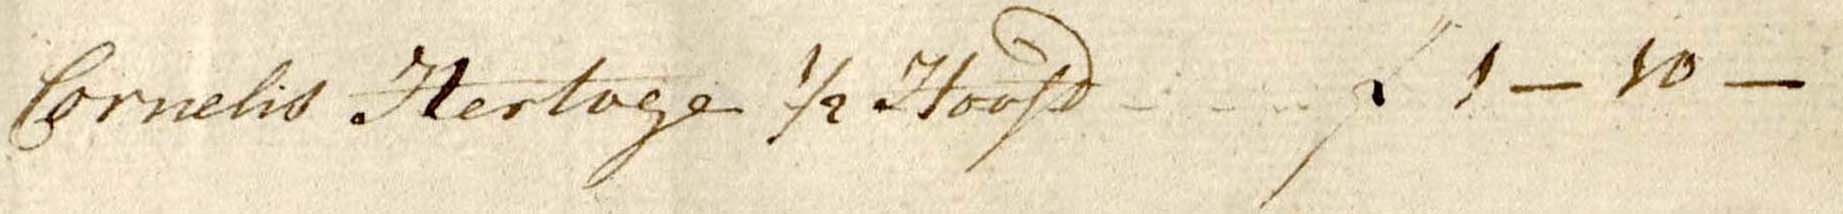 Cornelis Hertoge ½ Hoofd - - - ƒ 1 - 10 -